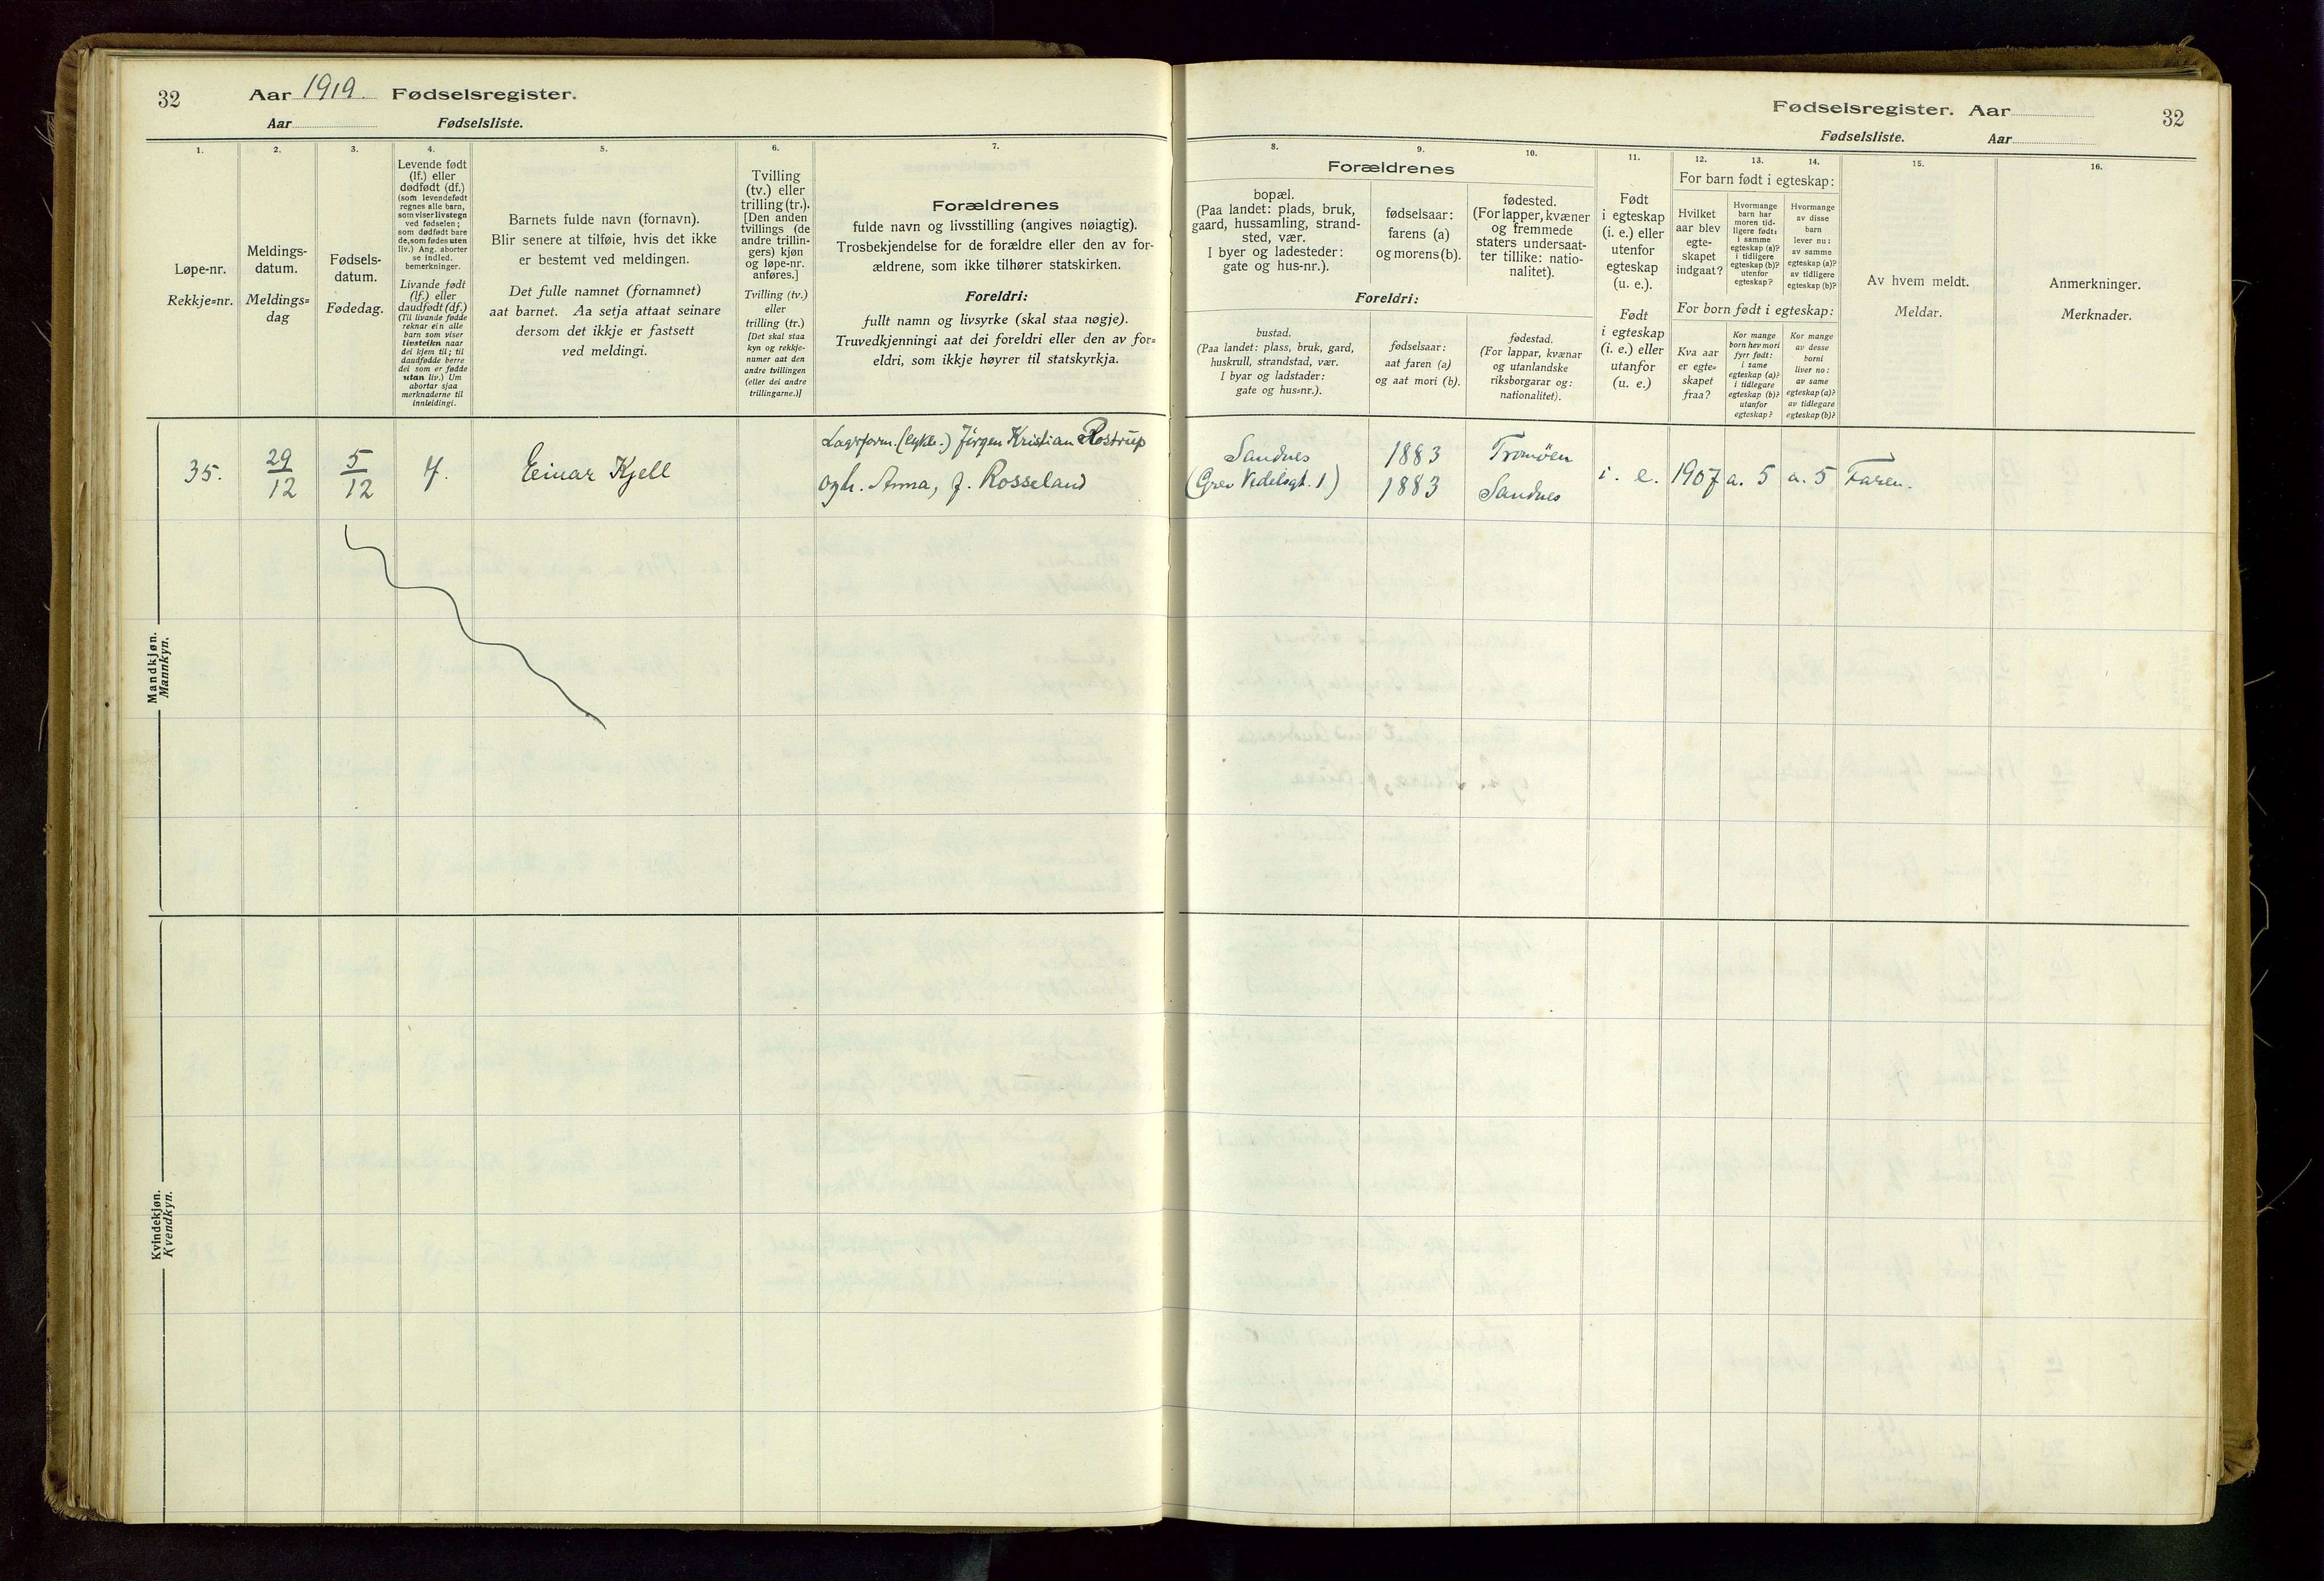 32
Aar 1919. Fødselsregister.
Aar Fødselsliste.
1.
Løpe-nr.
Rekkje=nr.
2.
Meldings-
datum.
Meldings=
dag
3.
Fødsels-
datum.
Fødedag.
4.
Levende født
(lf.) eller
dødfødt (df.)
(som levendefødt
regnes alle barn,
som viser livstegn
ved fødselen;
som dødfødt bare
de, som fødes uten
liv.) Ang. aborter
se indled.
bemerkninger.
Livande født
(lf.) eller
daudfødt (df.)
(Til livande fødde
reknar ein alle
barn som viser
livsteikn naar
dei kjem til; til
daudfødde berre
dei som er fødde
utan liv.) Um
abortar sjaa
merknaderne til
innleidingi.
5.
Barnets fulde navn (fornavn).
Blir senere at tilføie, hvis det ikke
er bestemt ved meldingen.
Det fulle namnet (fornamnet)
aat barnet. Aa setja attaat seinare
dersom det ikkje er fastsett
ved meldingi.
6.
Tvilling
(tv.) eller
trilling (tr.).
[Den anden
tvillings (de
andre trillin-
gers) kjøn
og løpe-nr.
anføres.]
Tvilling (tv.)
eller
trilling (tr.)
[Det skal staa
kyn og rekkje-
numer aat den
andre tvillingen
(eller dei andre
trillingarne.)]
7.
Forældrenes
fulde navn og livsstilling (angives nøiagtig).
Trosbekjendelse for de forældre eller den av for-
ældrene, som ikke tilhører statskirken.
Foreldri:
fullt namn og livsyrke (skal staa nøgje).
Truvedkjenningi aat dei foreldri eller den av for=
eldri, som ikkje høyrer til statskyrkja.
Fødselsregister. Aar
32
Fødselsliste. Aar
Forældrenes
8.
bopæl.
(Paa landet: plads, bruk,
gaard, hussamling, strand-
sted, vær.
I byer og ladesteder:
gate og hus-nr.).
9.
fødselsaar:
farens (a)
og morens (b).
10.
fødested.
(For lapper, kvæner
og fremmede
staters undersaat-
ter tillike: natio-
nalitet).
Foreldri:
bustad.
(Paa landet: plass, bruk, gard,
huskrull, strandstad, vær.
I byar og ladstader:
gate og hus=nr.).
fødselsaar:
aat faren (a)
og aat mori (b).
fødestad.
(For lappar, kvænar
og utanlandske
riksborgarar og:
nationalitet).
11.
Født
i egteskap
(i. e.) eller
utenfor
egteskap
(u. e.).
Født
i egteskap
(i. e.) eller
utanfor
(u. e.)
12. 13. 14.
For barn født i egteskap:
Hvilket
aar blev
egte-
skapet
indgaat?
Hvormange
barn har
moren tid-
ligere født:
i samme
egteskap (a)?
i tidligere
egteskap (b)?
utenfor
egteskap?
Hvormange
av disse
barn
lever nu:
av samme
egteskap (a)?
av tidligere
egteskap (b)?
For born født i egteskap:
Kva aar
er egte=
skapet
fraa?
Kor mange
born hev mori
fyrr født:
i same
egteskap (a)?
i tidlegare
egteskap (b)?
utanfor
egteskap?
Kor mange
av desse
borni
liver no:
av same
egteskap (a)?
av tidlegare
egteskap (b)?
15.
Av hvem meldt.
Meldar.
16.
Anmerkninger.
Merknader.
Mandkjøn.
Mannkyn.
35. 29/12 5/12 Einar Kjell
Jørgen Kristian Rostrup
Anna, f. Rosseland
Sandnes 1883 Tromøen
(Grev Vedelsgt. 1) 1883 Sandnes
i. e. 1907 a. 5 a. 5 Faren.
Kvindekjøn.
Kvendkyn.